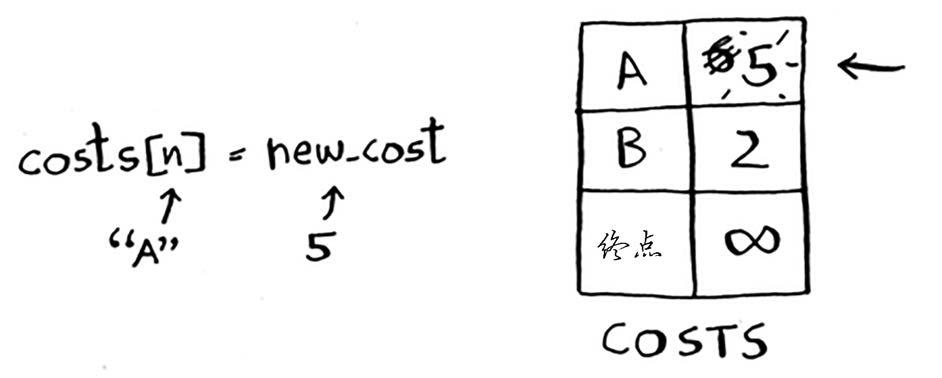 costs[n] = new_cost
“A”
5
A 5
B 2
终点 ∞
COSTS